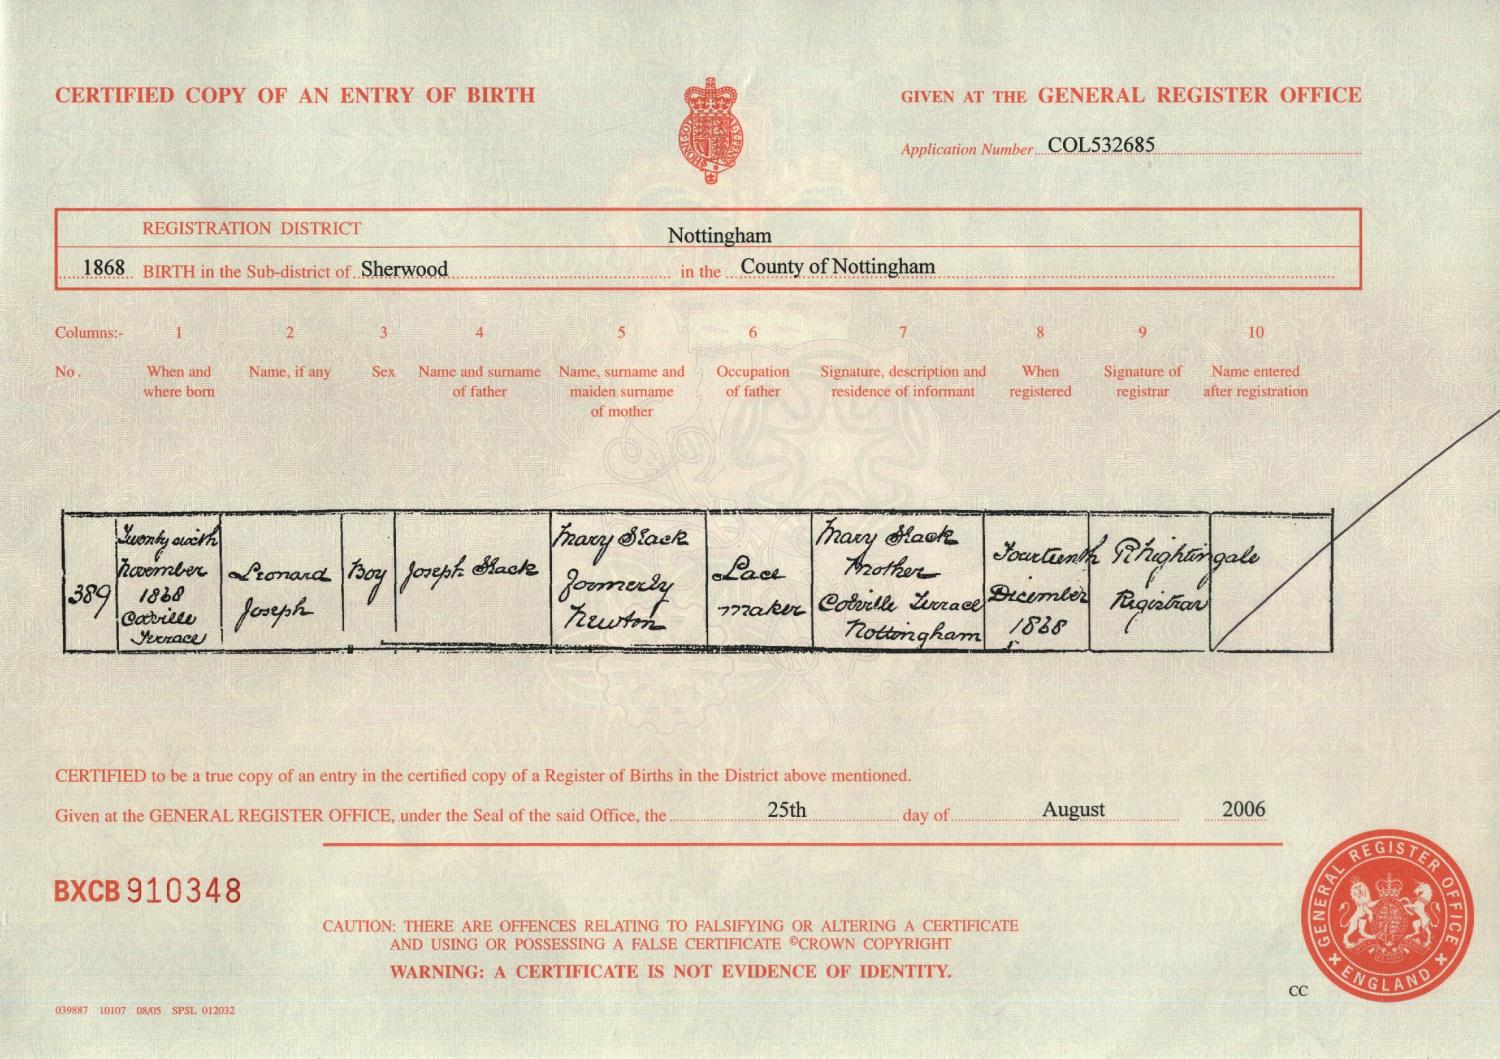 CERTIFIED COPY OF AN ENTRY OF BIRTH
GIVEN AT THE GENERAL REGISTER OFFICE
Application Number COL532685
REGISTRATION DISTRICT Nottingham
1868 BIRTH in the Sub-district of Sherwood in the County of Nottingham
Columns:- 1 2 3 4 5 6 7 8 9 10
No. When and where born
Name, if any
Sex
Name and surname of father
Name, surname and maiden surname of mother
Occupation of father
Signature, description and residence of informant
When registered
Signature of registrar
Name entered after registration
389
Twenty sixth
November
1868
Colville
Terrace
Leonard
Joseph
Boy
Joseph Slack
Mary Slack
formerly
Newton
Lace
maker
Mary Slack
Mother
Colville Terrace
Nottingham
Fourteenth
December
1868
R Nightingale
Registrar
CERTIFIED to be a true copy of an entry in the certified copy of a Register of Births in the District above mentioned.
Given at the GENERAL REGISTER OFFICE, under the Seal of the said Office, the 25th day of August 2006
BXCB 910348
CAUTION: THERE ARE OFFENCES RELATING TO FALSIFYING OR ALTERING A CERTIFICATE
AND USING OR POSSESSING A FALSE CERTIFICATE ©CROWN COPYRIGHT
WARNING: A CERTIFICATE IS NOT EVIDENCE OF IDENTITY.
GENERAL REGISTER OFFICE
ENGLAND
CC
039887 10107 08/05 SPSL 012032